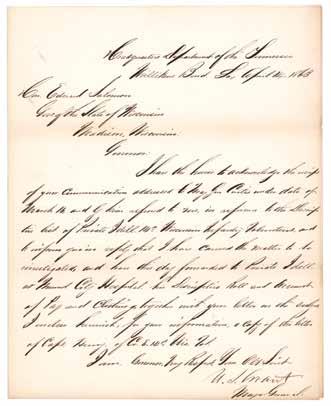 Headquarters Department of the Tennessee
Millikens Bend La, April 1863
Edward Salomon
Gov of the State of Wisconsin
Madison, Wisconsin
Governor
I have the honor to acknowledge the receipt
of your communication addressed to Maj Gen under date of
March and by him referred to me, in reference to the
of Private Wisconsin Infantry Volunteers and
to inform you in reply that I have caused the matter to be
investigated, and have this day forwarded to Private
at Mound City Hospital his Descriptive Roll and account
of Pay and Clothing, together with your letter on the subject
I enclose herewith, for your information, a copy of the letter
of Capt Henry, of Co
I am, Governor, Very Respect Your Obt Servt
U. S. Grant
Major General